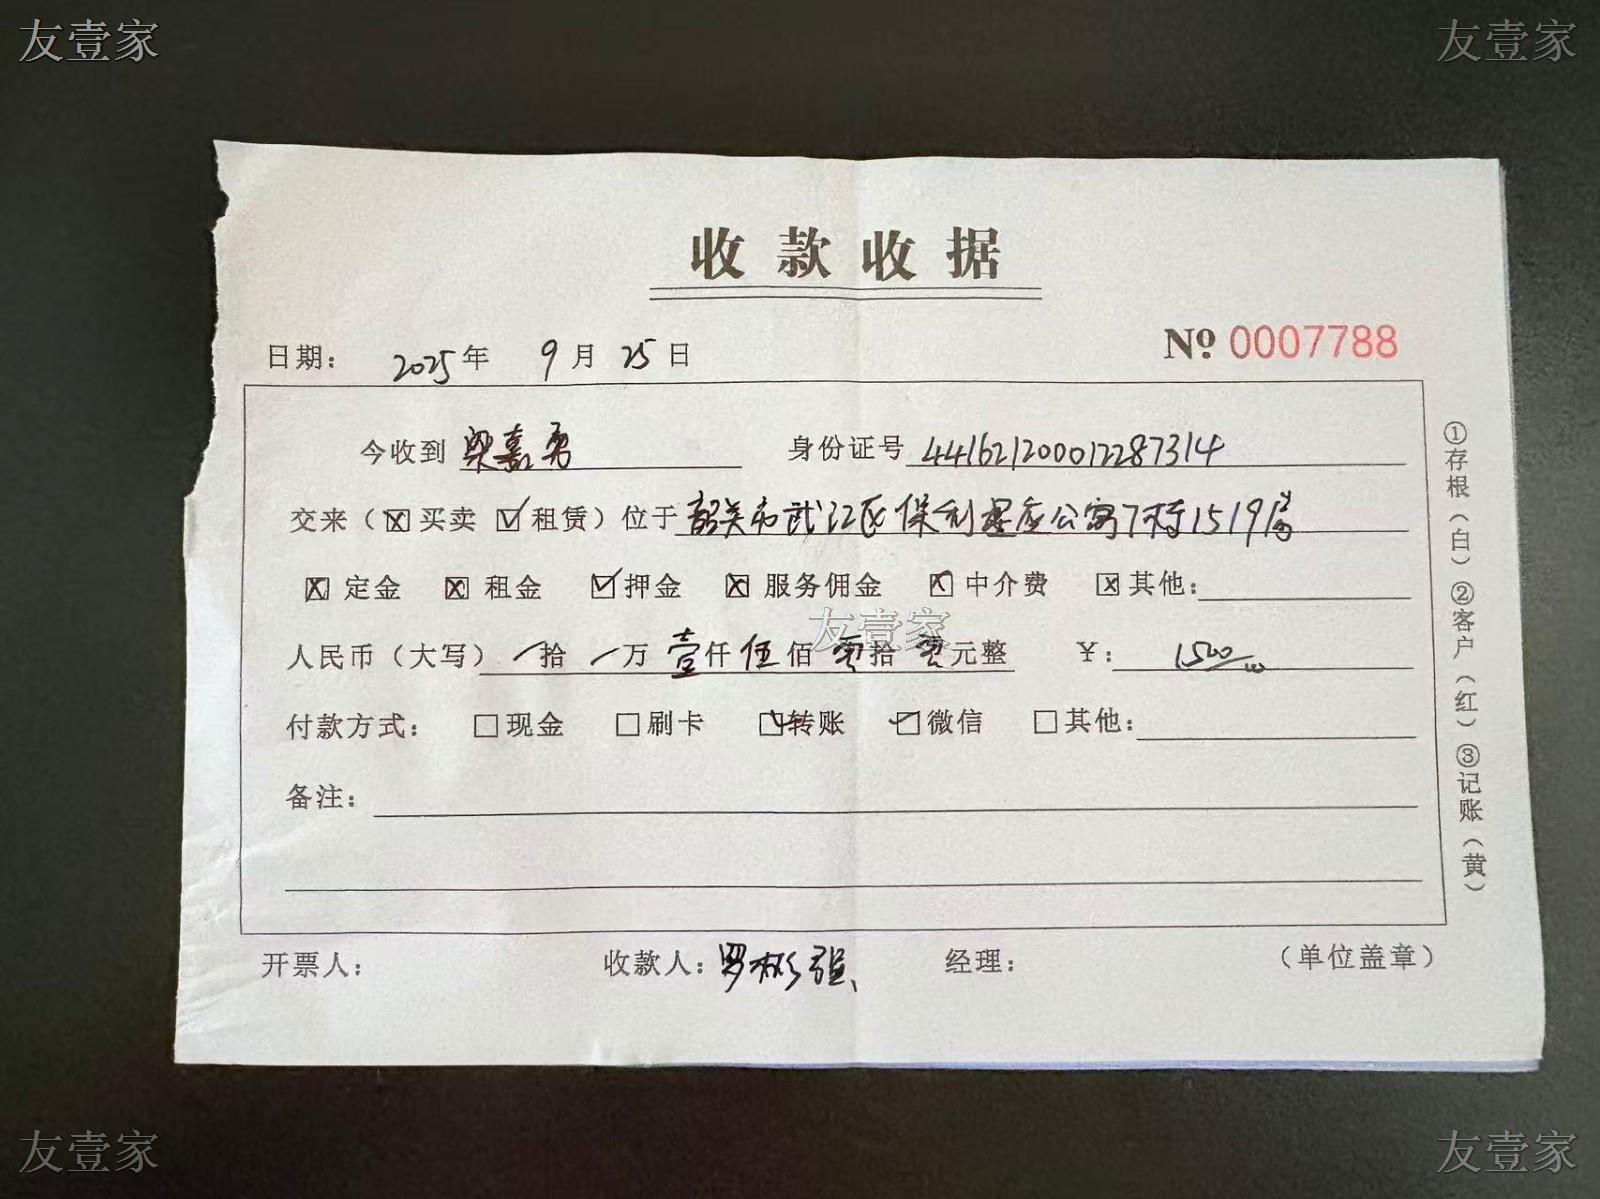 友壹家 友壹家
收款收据
日期： 2025年 9月 25日 № 0007788
今收到 梁嘉勇 身份证号 441621200012287314
交来（☒买卖 ☑租赁）位于 韶关市武江区保利 公寓7栋1519房
☒定金 ☒租金 ☑押金 ☒服务佣金 ☒中介费 ☒其他：
友壹家
人民币（大写） / 拾 / 万 壹仟 伍佰 零拾 零元整 ¥： 1500/00
付款方式： □现金 □刷卡 ☑转账 ☑微信 □其他：
备注：
开票人： 收款人：罗彬强 经理： （单位盖章）
①存根（白）②客户（红）③记账（黄）
友壹家 友壹家